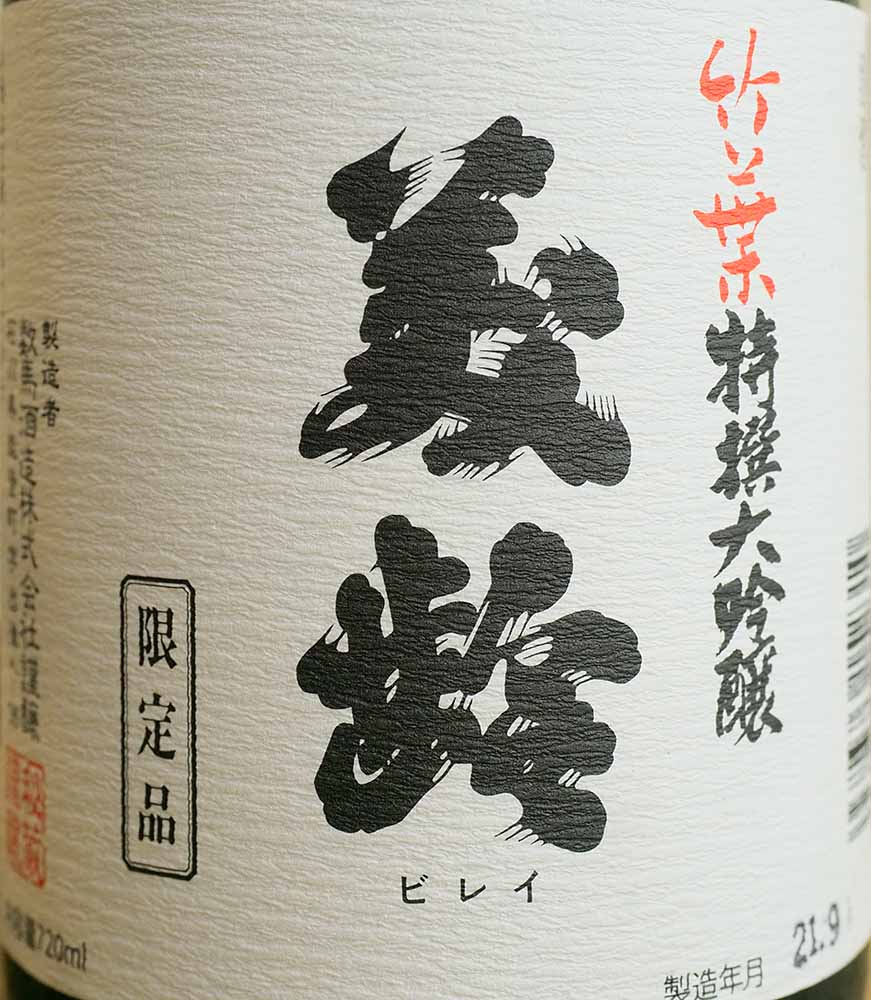 竹葉 特撰大吟醸
美齢
ビレイ
限定品
製造者
数馬酒造株式会社謹醸
720ml
製造年月
21.9